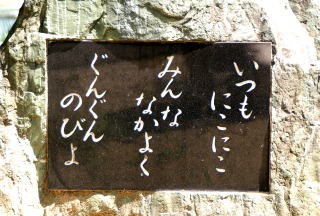 いつも
にこにこ
みんな
なかよく
ぐんぐん
のびよ